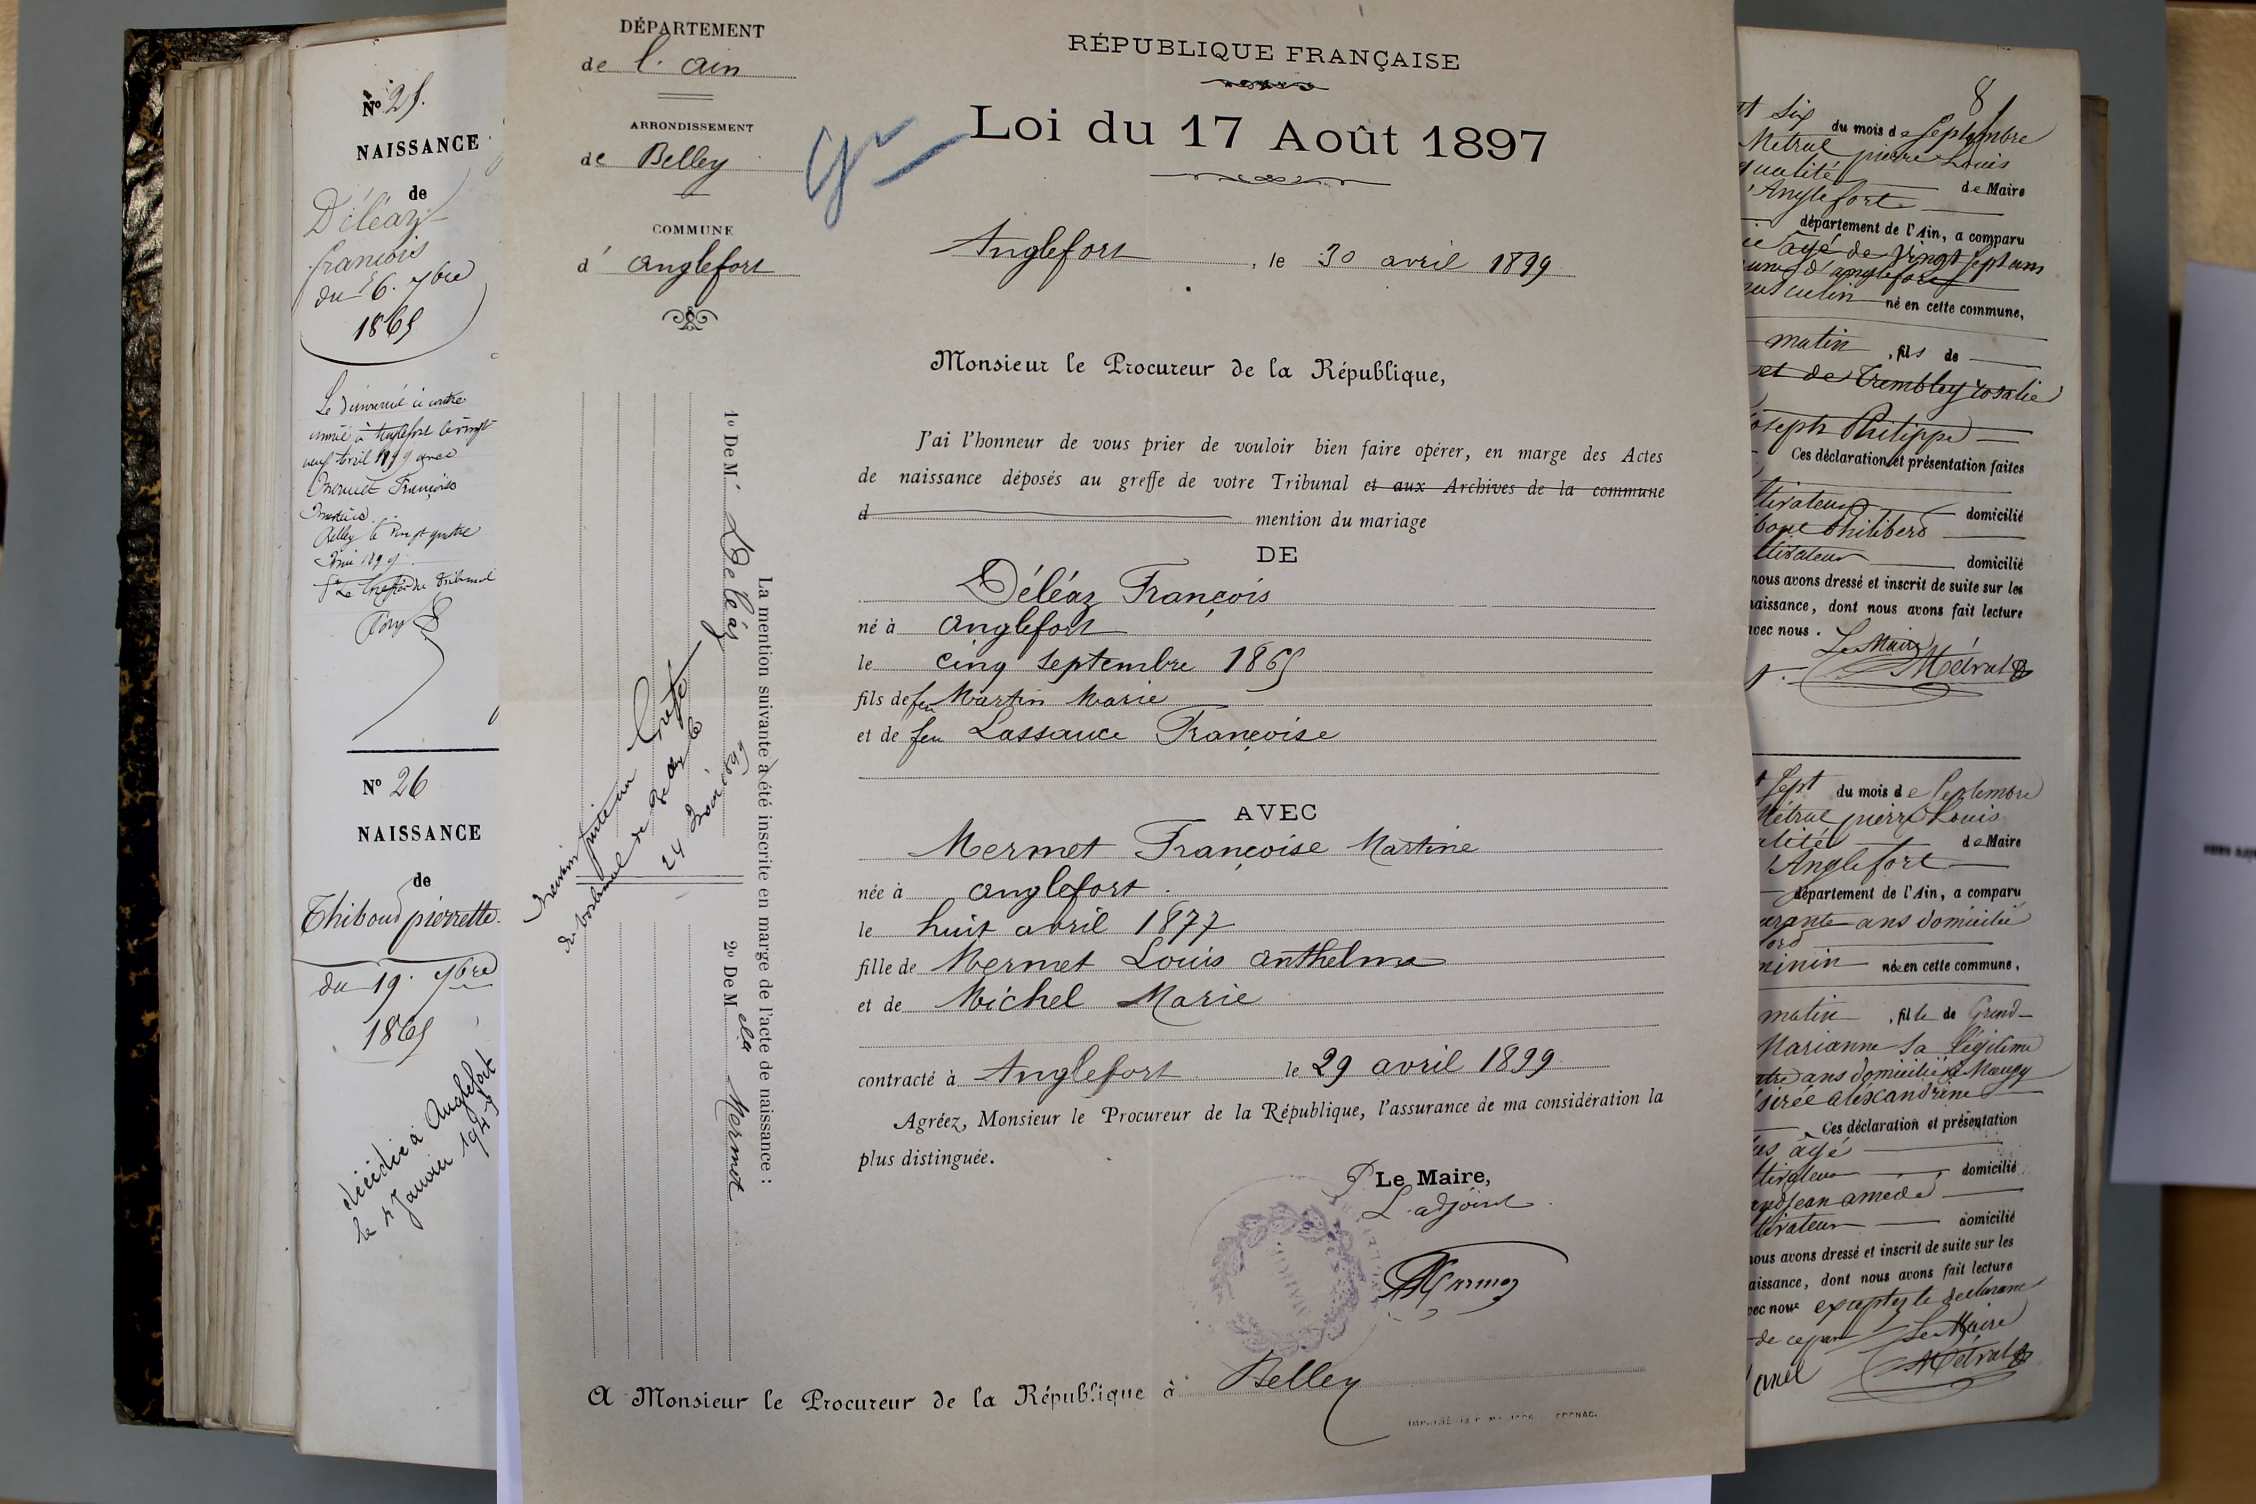 N° 25.
NAISSANCE
de
Déléaz
françois
du 6. 7bre
1865
Le dénommé ci contre
marié à Anglefort le vingt
neuf Avril 1899 avec
Mermet Françoise
Martine.
Belley le vingt quatre
1899
Le Greffier du Tribunal
N° 26
NAISSANCE
de
Thiboud pierrette
du 19. 7bre
1865
décédée à Anglefort
le 4 Janvier 194
DÉPARTEMENT
de l'ain
ARRONDISSEMENT
de Belley
COMMUNE
d' anglefort
RÉPUBLIQUE FRANÇAISE
Loi du 17 Août 1897
Anglefort, le 30 avril 1899
Monsieur le Procureur de la République,
J'ai l'honneur de vous prier de vouloir bien faire opérer, en marge des Actes
de naissance déposés au greffe de votre Tribunal et aux Archives de la commune
d mention du mariage
DE
Déléaz François
né à anglefort
le cinq septembre 1865
fils de feu Martin Marie
et de feu Lassauce Françoise
AVEC
Mermet Françoise Martine
née à anglefort.
le huit avril 1877
fille de Mermet Louis anthelme
et de Michel Marie
contracté à Anglefort le 29 avril 1899
Agréez, Monsieur le Procureur de la République, l'assurance de ma considération la
plus distinguée.
P. Le Maire,
L'adjoint
A Monsieur le Procureur de la République à Belley
La mention suivante a été inscrite en marge de l'acte de naissance :
1° De M. Déléaz
Mention faite au Greffe
du tribunal de le
24 1899
2° De M elle Mermet
81
six du mois de Septembre
Métral pierre Louis
qualité de Maire
d'Anglefort
département de l'Ain, a comparu
âgé de vingt sept ans
d'anglefort
masculin né en cette commune,
matin, fils de
et de Trembley rosalie
Joseph Philippe
Ces déclaration et présentation faites
domicilié
Philibert
domicilié
nous avons dressé et inscrit de suite sur les
naissance, dont nous avons fait lecture
avec nous.
Le Maire
Métral
Sept du mois de Septembre
Métral pierre Louis
qualité de Maire
d'Anglefort
département de l'Ain, a comparu
quarante ans domicilié
féminin née en cette commune,
matin, fille de
Marianne Sa légitime
ans domiciliée
désirée aléxandrine
Ces déclaration et présentation
âgé
domicilié
jean amédé
domicilié
nous avons dressé et inscrit de suite sur les
naissance, dont nous avons fait lecture
avec nous excepter le déclarant
de ce Le Maire
Métral